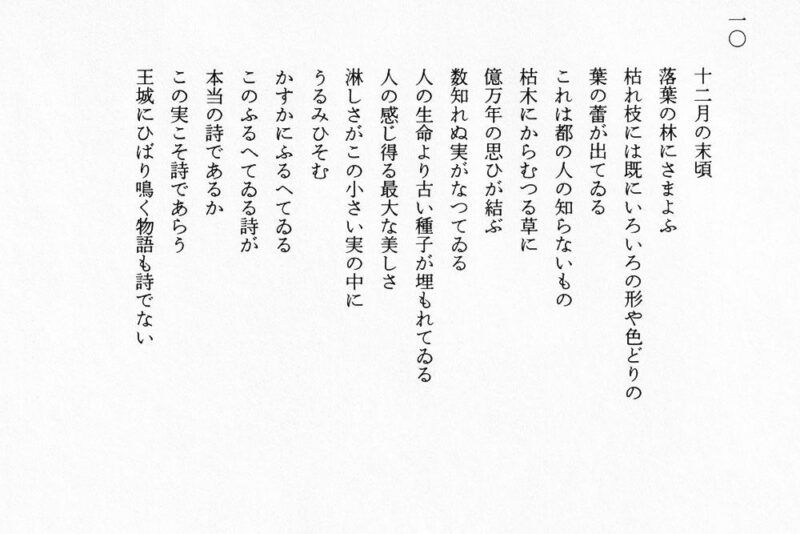 一〇
十二月の末頃
落葉の林にさまよふ
枯れ枝には既にいろいろの形や色どりの
葉の蕾が出てゐる
これは都の人の知らないもの
枯木にからむつる草に
億万年の思ひが結ぶ
数知れぬ実がなつてゐる
人の生命より古い種子が埋もれてゐる
人の感じ得る最大な美しさ
淋しさがこの小さい実の中に
うるみひそむ
かすかにふるへてゐる
このふるへてゐる詩が
本当の詩であるか
この実こそ詩であらう
王城にひばり鳴く物語も詩でない